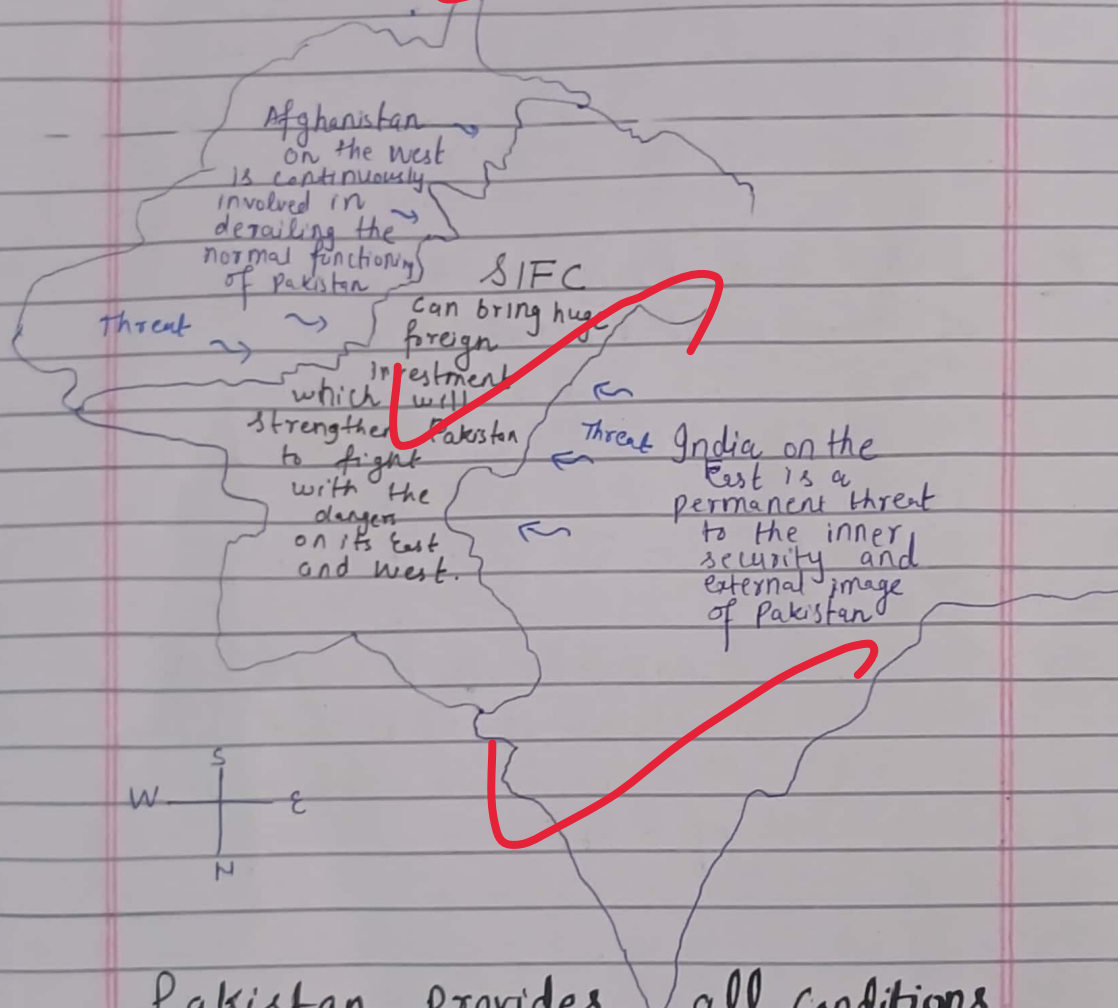 Afghanistan
on the west
is continuously
involved in
derailing the
normal functioning
of Pakistan
Threat
SIFC
can bring huge
foreign
investment
which will
strengthen Pakistan
to fight
with the
dangers
on its East
and west.
Threat
India on the
East is a
permanent threat
to the inner
security and
external image
of Pakistan
S
W E
N
Pakistan provides all conditions